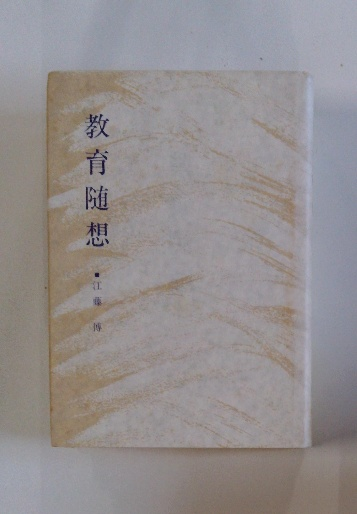 教育随想
■江藤 博